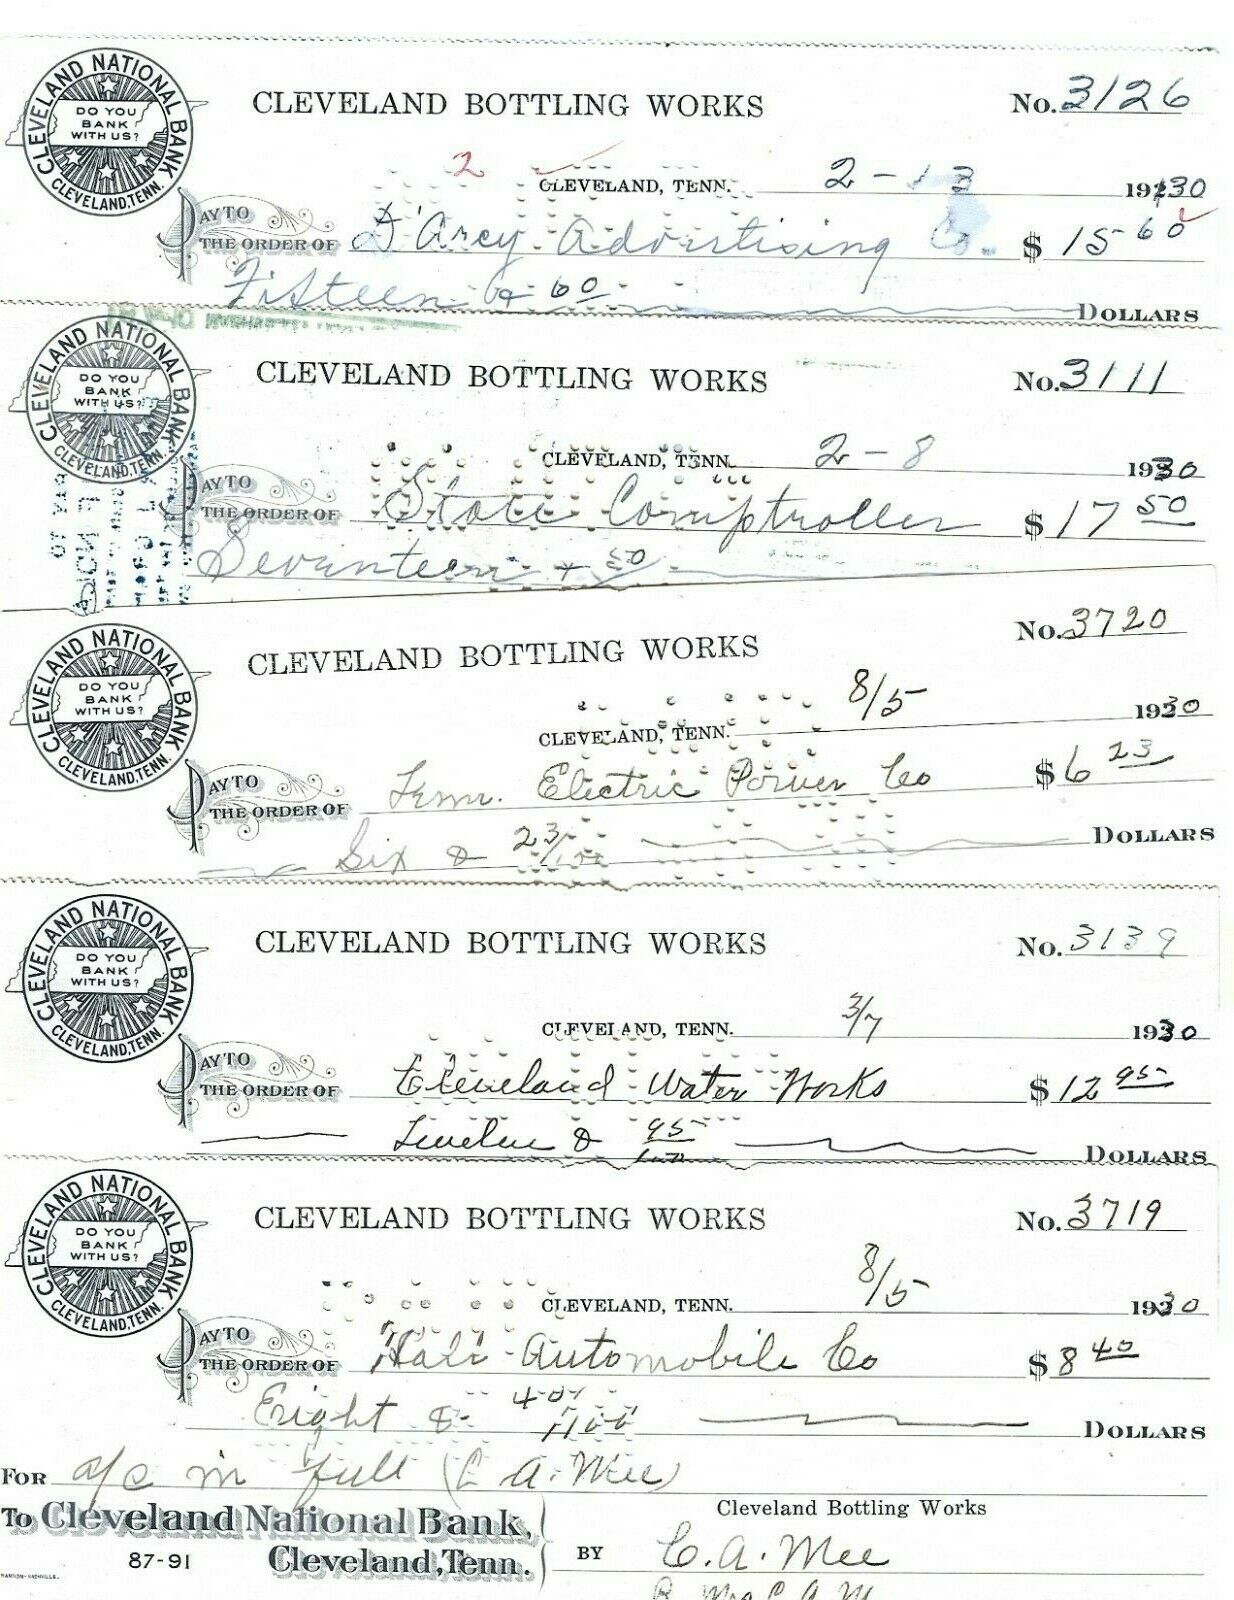 CLEVELAND NATIONAL BANK
DO YOU
BANK
WITH US?
CLEVELAND, TENN.
CLEVELAND BOTTLING WORKS
No. 3126
2
CLEVELAND, TENN. 2-13 1930
PAY TO
THE ORDER OF D'Arcy Advertising Co. $ 15 60
Fifteen & 60 DOLLARS
CLEVELAND NATIONAL BANK
DO YOU
BANK
WITH US?
CLEVELAND, TENN.
CLEVELAND BOTTLING WORKS
No. 3111
CLEVELAND, TENN. 2-8 1930
PAY TO
THE ORDER OF State Comptroller $ 17 50
Seventeen & 50
CLEVELAND NATIONAL BANK
DO YOU
BANK
WITH US?
CLEVELAND, TENN.
CLEVELAND BOTTLING WORKS
No. 3720
CLEVELAND, TENN. 8/5 1930
PAY TO
THE ORDER OF Tenn. Electric Power Co $ 6 23
Six & 23/100 DOLLARS
CLEVELAND NATIONAL BANK
DO YOU
BANK
WITH US?
CLEVELAND, TENN.
CLEVELAND BOTTLING WORKS
No. 3139
CLEVELAND, TENN. 3/7 1930
PAY TO
THE ORDER OF Cleveland Water Works $ 12 95
Twelve & 95/100 DOLLARS
CLEVELAND NATIONAL BANK
DO YOU
BANK
WITH US?
CLEVELAND, TENN.
CLEVELAND BOTTLING WORKS
No. 3719
CLEVELAND, TENN. 8/5 1930
PAY TO
THE ORDER OF Automobile Co $ 8 40
Eight & 40/100 DOLLARS
FOR a/c in full (C A. Mee)
To Cleveland National Bank,
87-91 Cleveland, Tenn.
Cleveland Bottling Works
BY C. A. Mee